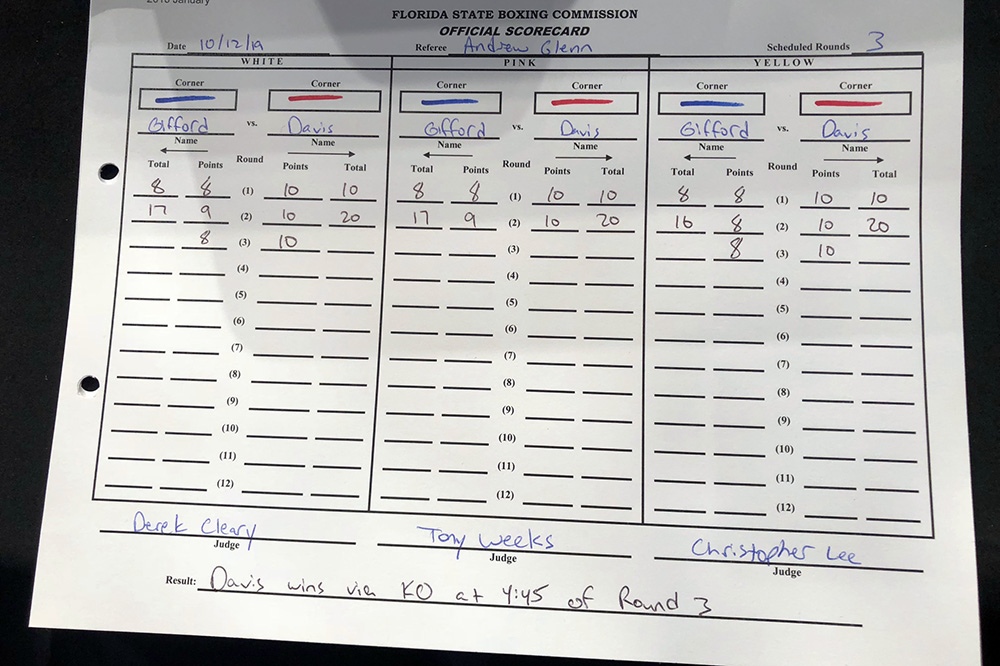 2018 January
FLORIDA STATE BOXING COMMISSION
OFFICIAL SCORECARD
Date 10/12/19 Referee Andrew Glenn Scheduled Rounds 3
WHITE PINK YELLOW
Corner Corner Corner Corner Corner Corner
Gifford vs. Davis Gifford vs. Davis Gifford vs. Davis
Name Name Name Name Name Name
Total Points Round Points Total Total Points Round Points Total Total Points Round Points Total
8 8 (1) 10 10 8 8 (1) 10 10 8 8 (1) 10 10
17 9 (2) 10 20 17 9 (2) 10 20 16 8 (2) 10 20
8 (3) 10 (3) 8 (3) 10
(4) (4) (4)
(5) (5) (5)
(6) (6) (6)
(7) (7) (7)
(8) (8) (8)
(9) (9) (9)
(10) (10) (10)
(11) (11) (11)
(12) (12) (12)
Derek Cleary Tony Weeks Christopher Lee
Judge Judge Judge
Result: Davis wins via KO at 4:45 of Round 3